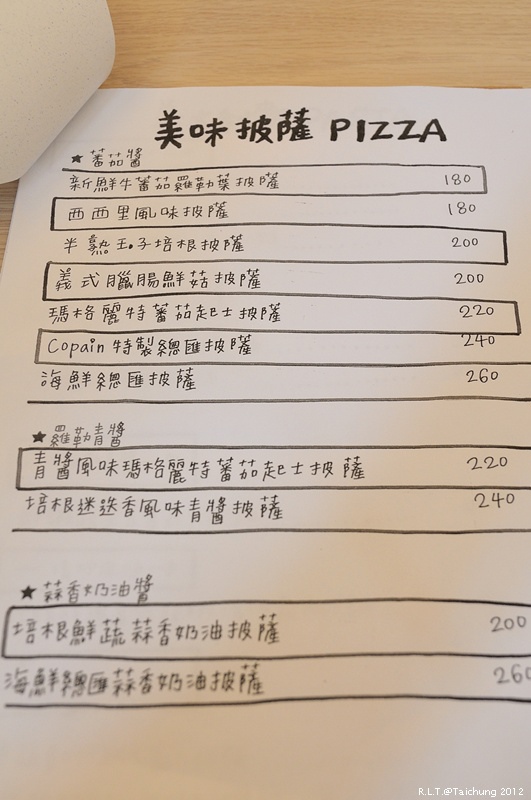 美味披薩 PIZZA
★蕃茄醬
新鮮牛蕃茄羅勒葉披薩 180
西西里風味披薩 180
半熟玉子培根披薩 200
義式臘腸鮮菇披薩 200
瑪格麗特蕃茄起士披薩 220
Copain 特製總匯披薩 240
海鮮總匯披薩 260
★羅勒青醬
青醬風味瑪格麗特蕃茄起士披薩 220
培根迷迭香風味青醬披薩 240
★蒜香奶油醬
培根鮮蔬蒜香奶油披薩 200
海鮮總匯蒜香奶油披薩 260
R.L.T.@Taichung 2012